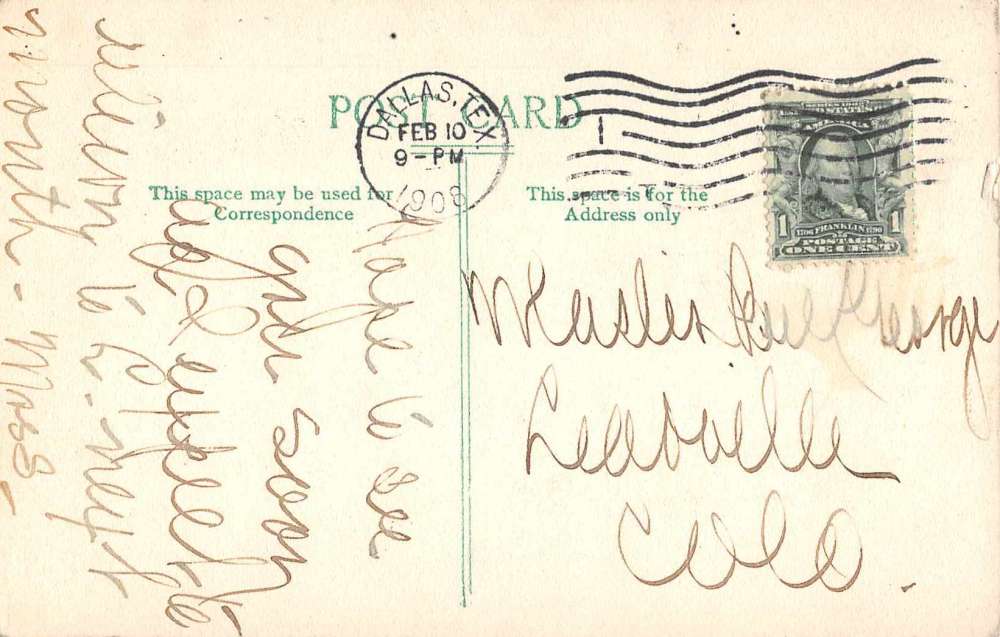 POST CARD
DALLAS, TEX.
FEB 10
9-PM
1908
1
This space may be used for
Correspondence
This space is for the
Address only
SERIES 1902
AMERICA
1 1
1706 FRANKLIN 1790
POSTAGE
ONE CENT
Hope to see
you soon
I expect to
return to L. next
month - Moss
Master George
Leadville
Colo.